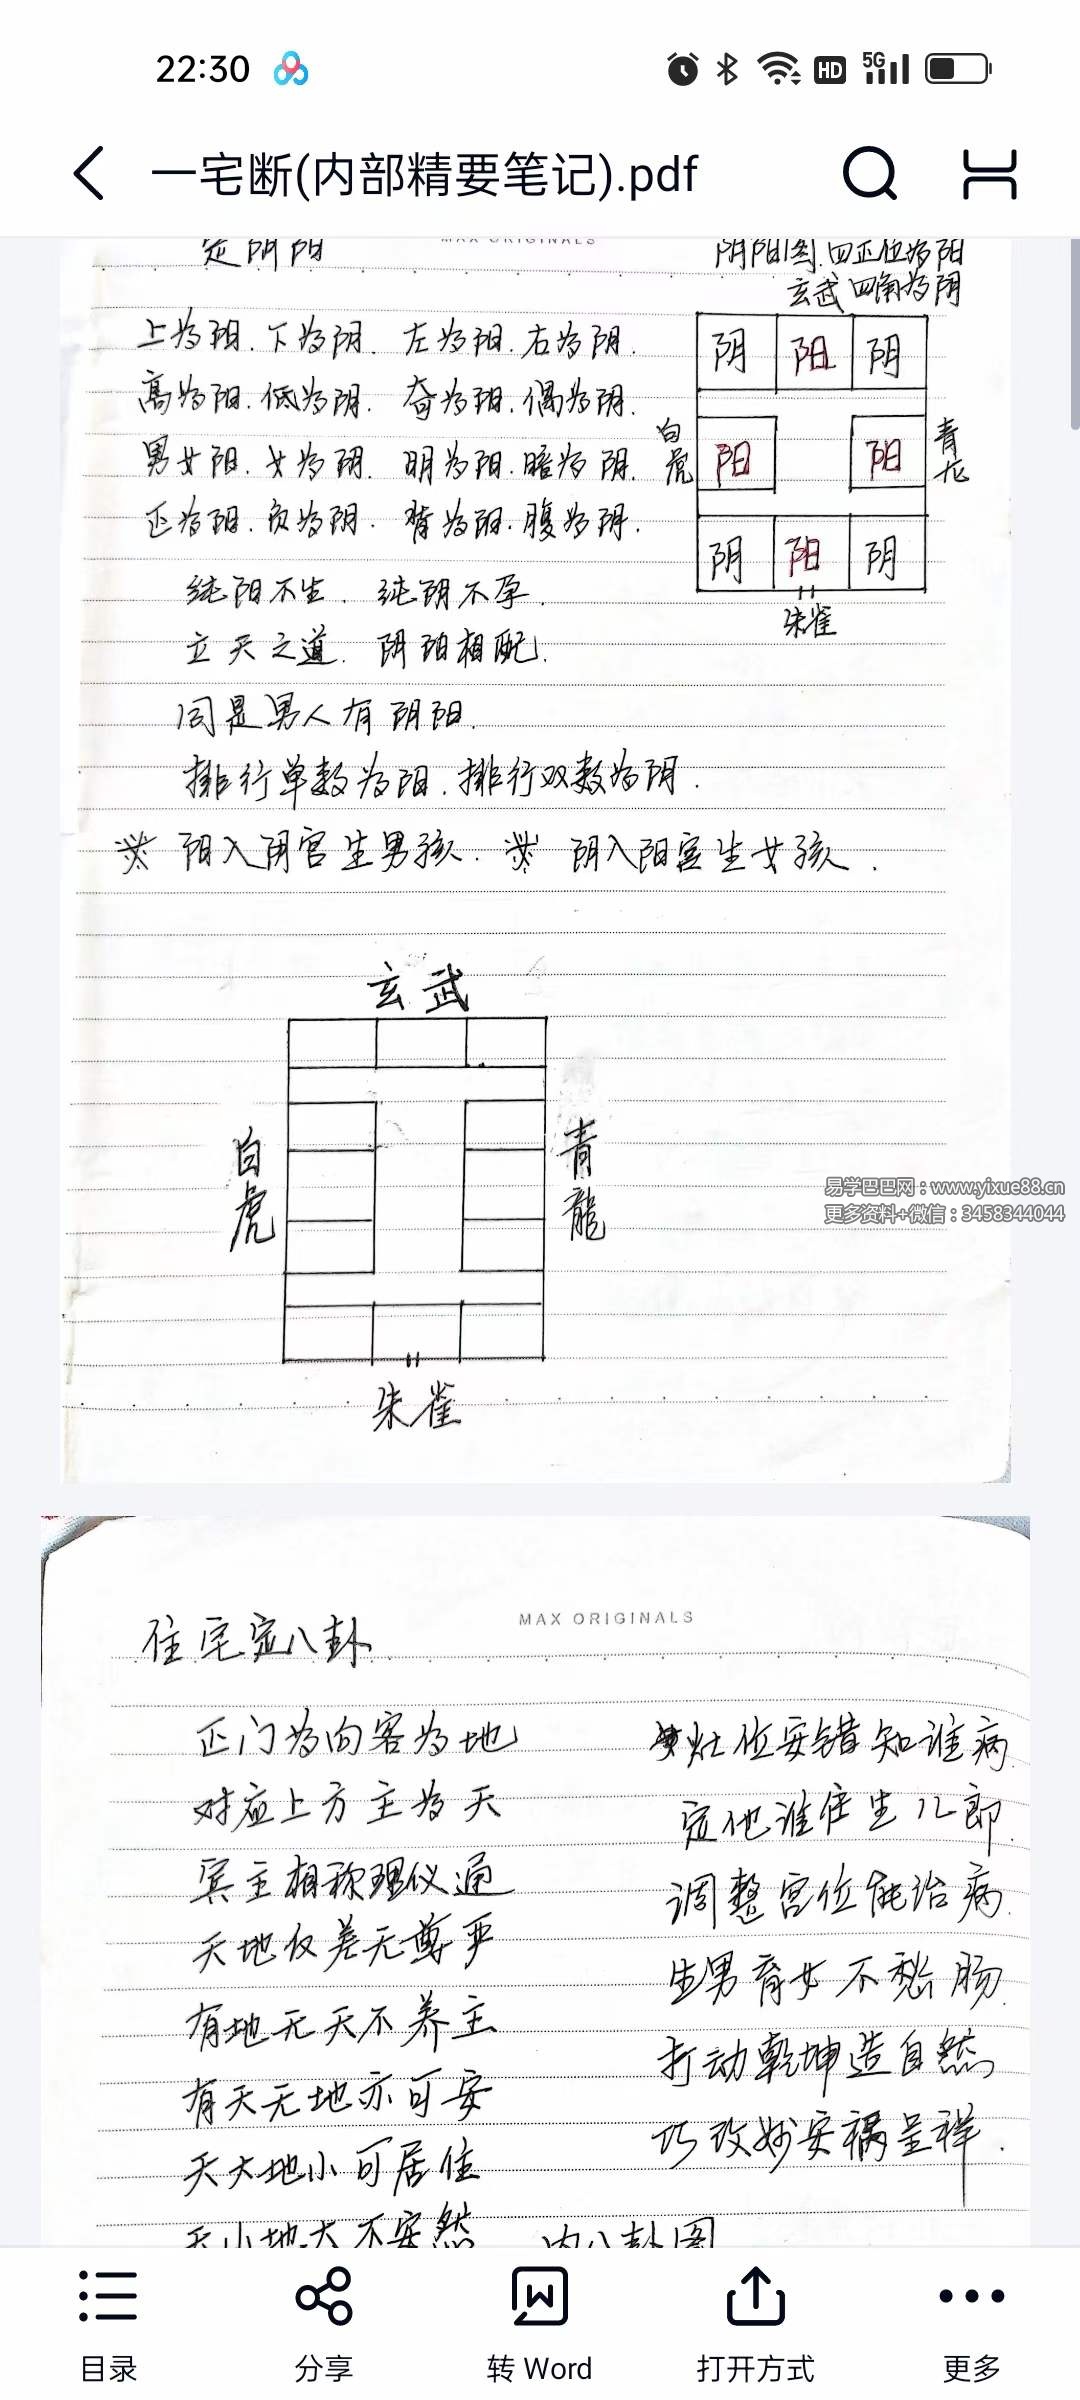 22:30
HD 5G
一宅断(内部精要笔记).pdf
定阴阳
MAX ORIGINALS
阴阳图.四正位为阳
玄武 四角为阴
上为阳.下为阴.左为阳.右为阴.
高为阳.低为阴.奇为阳.偶为阴.
男女阳.女为阴.明为阳.暗为阴.
正为阳.负为阴.背为阳.腹为阴.
阴 阳 阴
白虎 阳 阳 青龙
阴 阳 阴
朱雀
纯阳不生.纯阴不孕.
立天之道.阴阳相配.
同是男人有阴阳.
排行单数为阳.排行双数为阴.
阳入阴宫生男孩. 阴入阳宫生女孩.
玄武
白虎
青龍
朱雀
易学巴巴网：www.yixue88.cn
更多资料+微信：3458344044
MAX ORIGINALS
住宅定八卦
正门为向客为地
对应上方主为天
宾主相称理仪通
天地仅差无尊严
有地无天不养主
有天无地亦可安
天大地小可居住
天小地大不安然
灶位安错知谁病
定他谁住生儿郎.
调整宫位能治病.
生男育女不愁肠.
打动乾坤造自然
巧改妙安祸呈祥.
内八卦图
目录
分享
转 Word
打开方式
更多